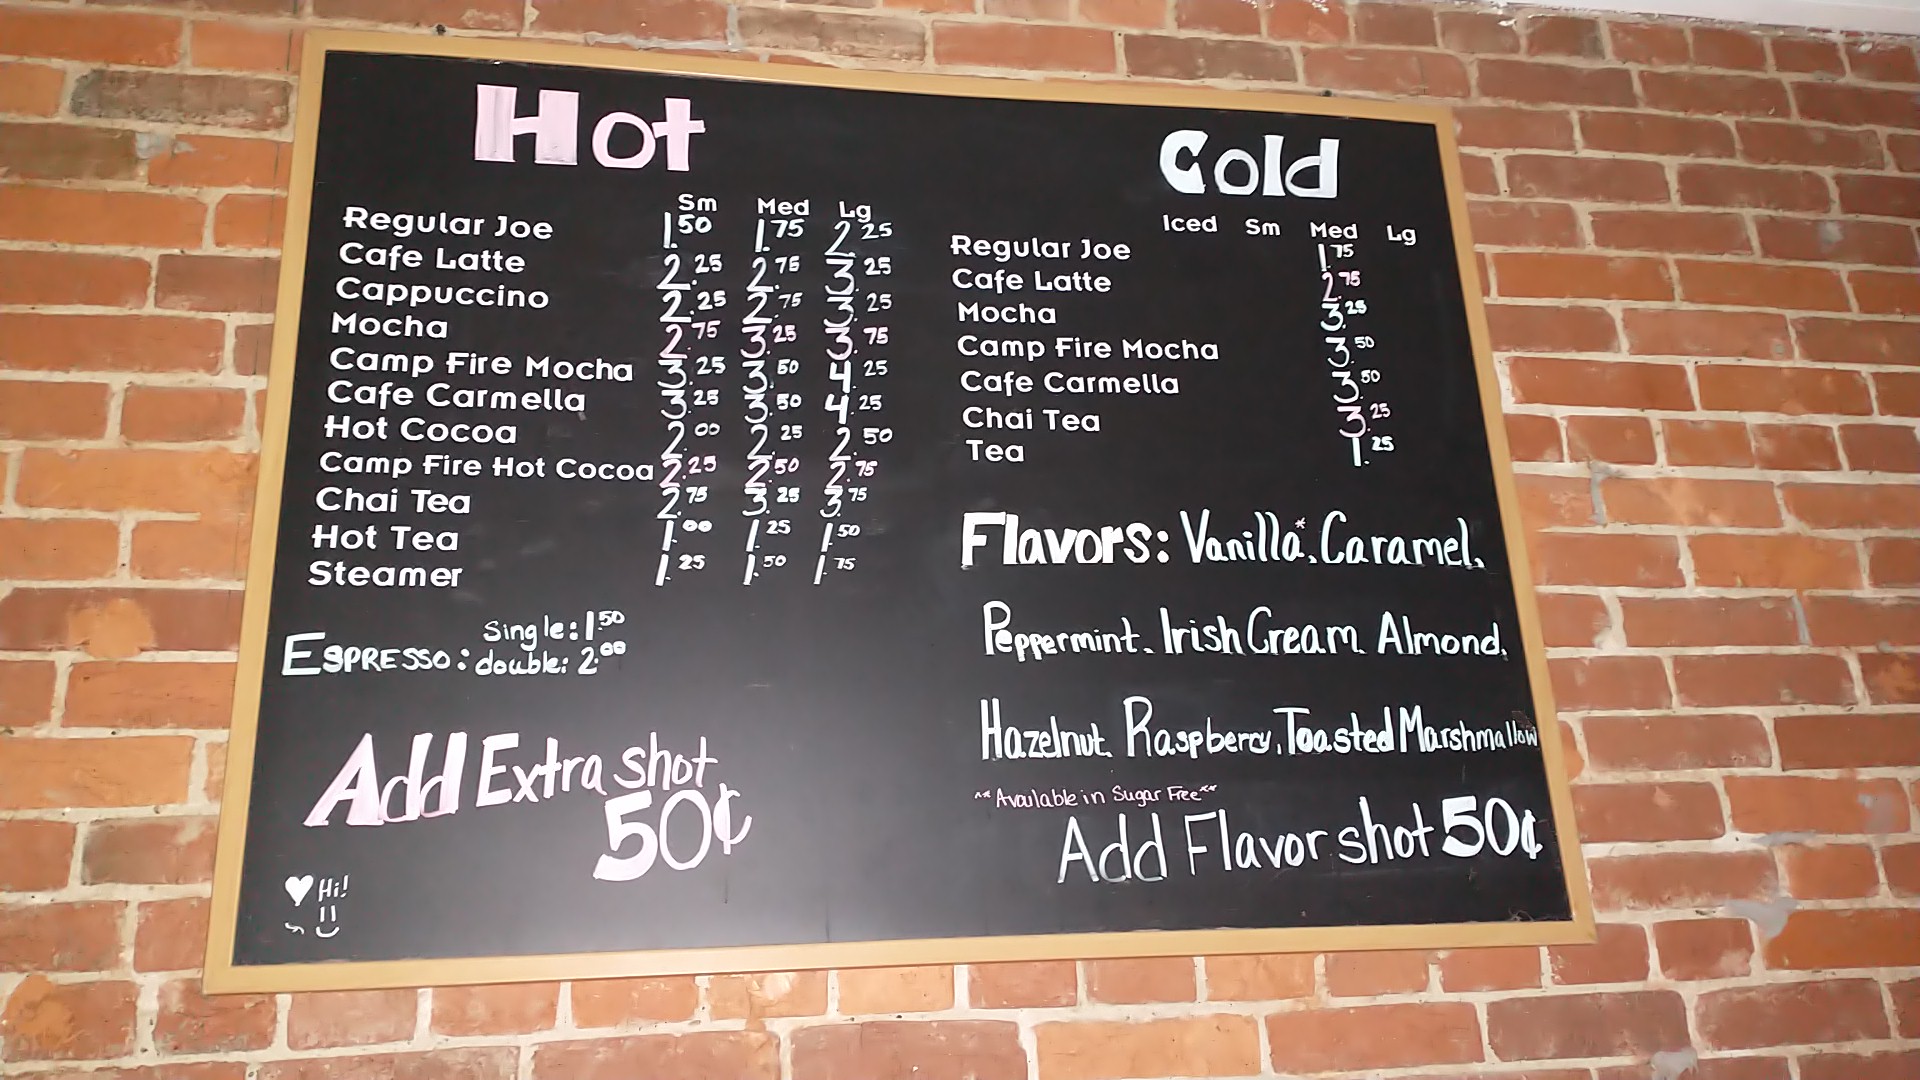 Hot
Sm Med Lg
Regular Joe 1.50 1.75 2.25
Cafe Latte 2.25 2.75 3.25
Cappuccino 2.25 2.75 3.25
Mocha 2.75 3.25 3.75
Camp Fire Mocha 3.25 3.50 4.25
Cafe Carmella 3.25 3.50 4.25
Hot Cocoa 2.00 2.25 2.50
Camp Fire Hot Cocoa 2.25 2.50 2.75
Chai Tea 2.75 3.25 3.75
Hot Tea 1.00 1.25 1.50
Steamer 1.25 1.50 1.75
Espresso: Single: 1.50
double: 2.00
Add Extra shot
50¢
Hi!
Cold
Iced Sm Med Lg
Regular Joe 1.75
Cafe Latte 2.75
Mocha 3.25
Camp Fire Mocha 3.50
Cafe Carmella 3.50
Chai Tea 3.25
Tea 1.25
Flavors: Vanilla*, Caramel,
Peppermint, Irish Cream, Almond,
Hazelnut, Raspberry, Toasted Marshmallow
**Available in Sugar Free**
Add Flavor shot 50¢